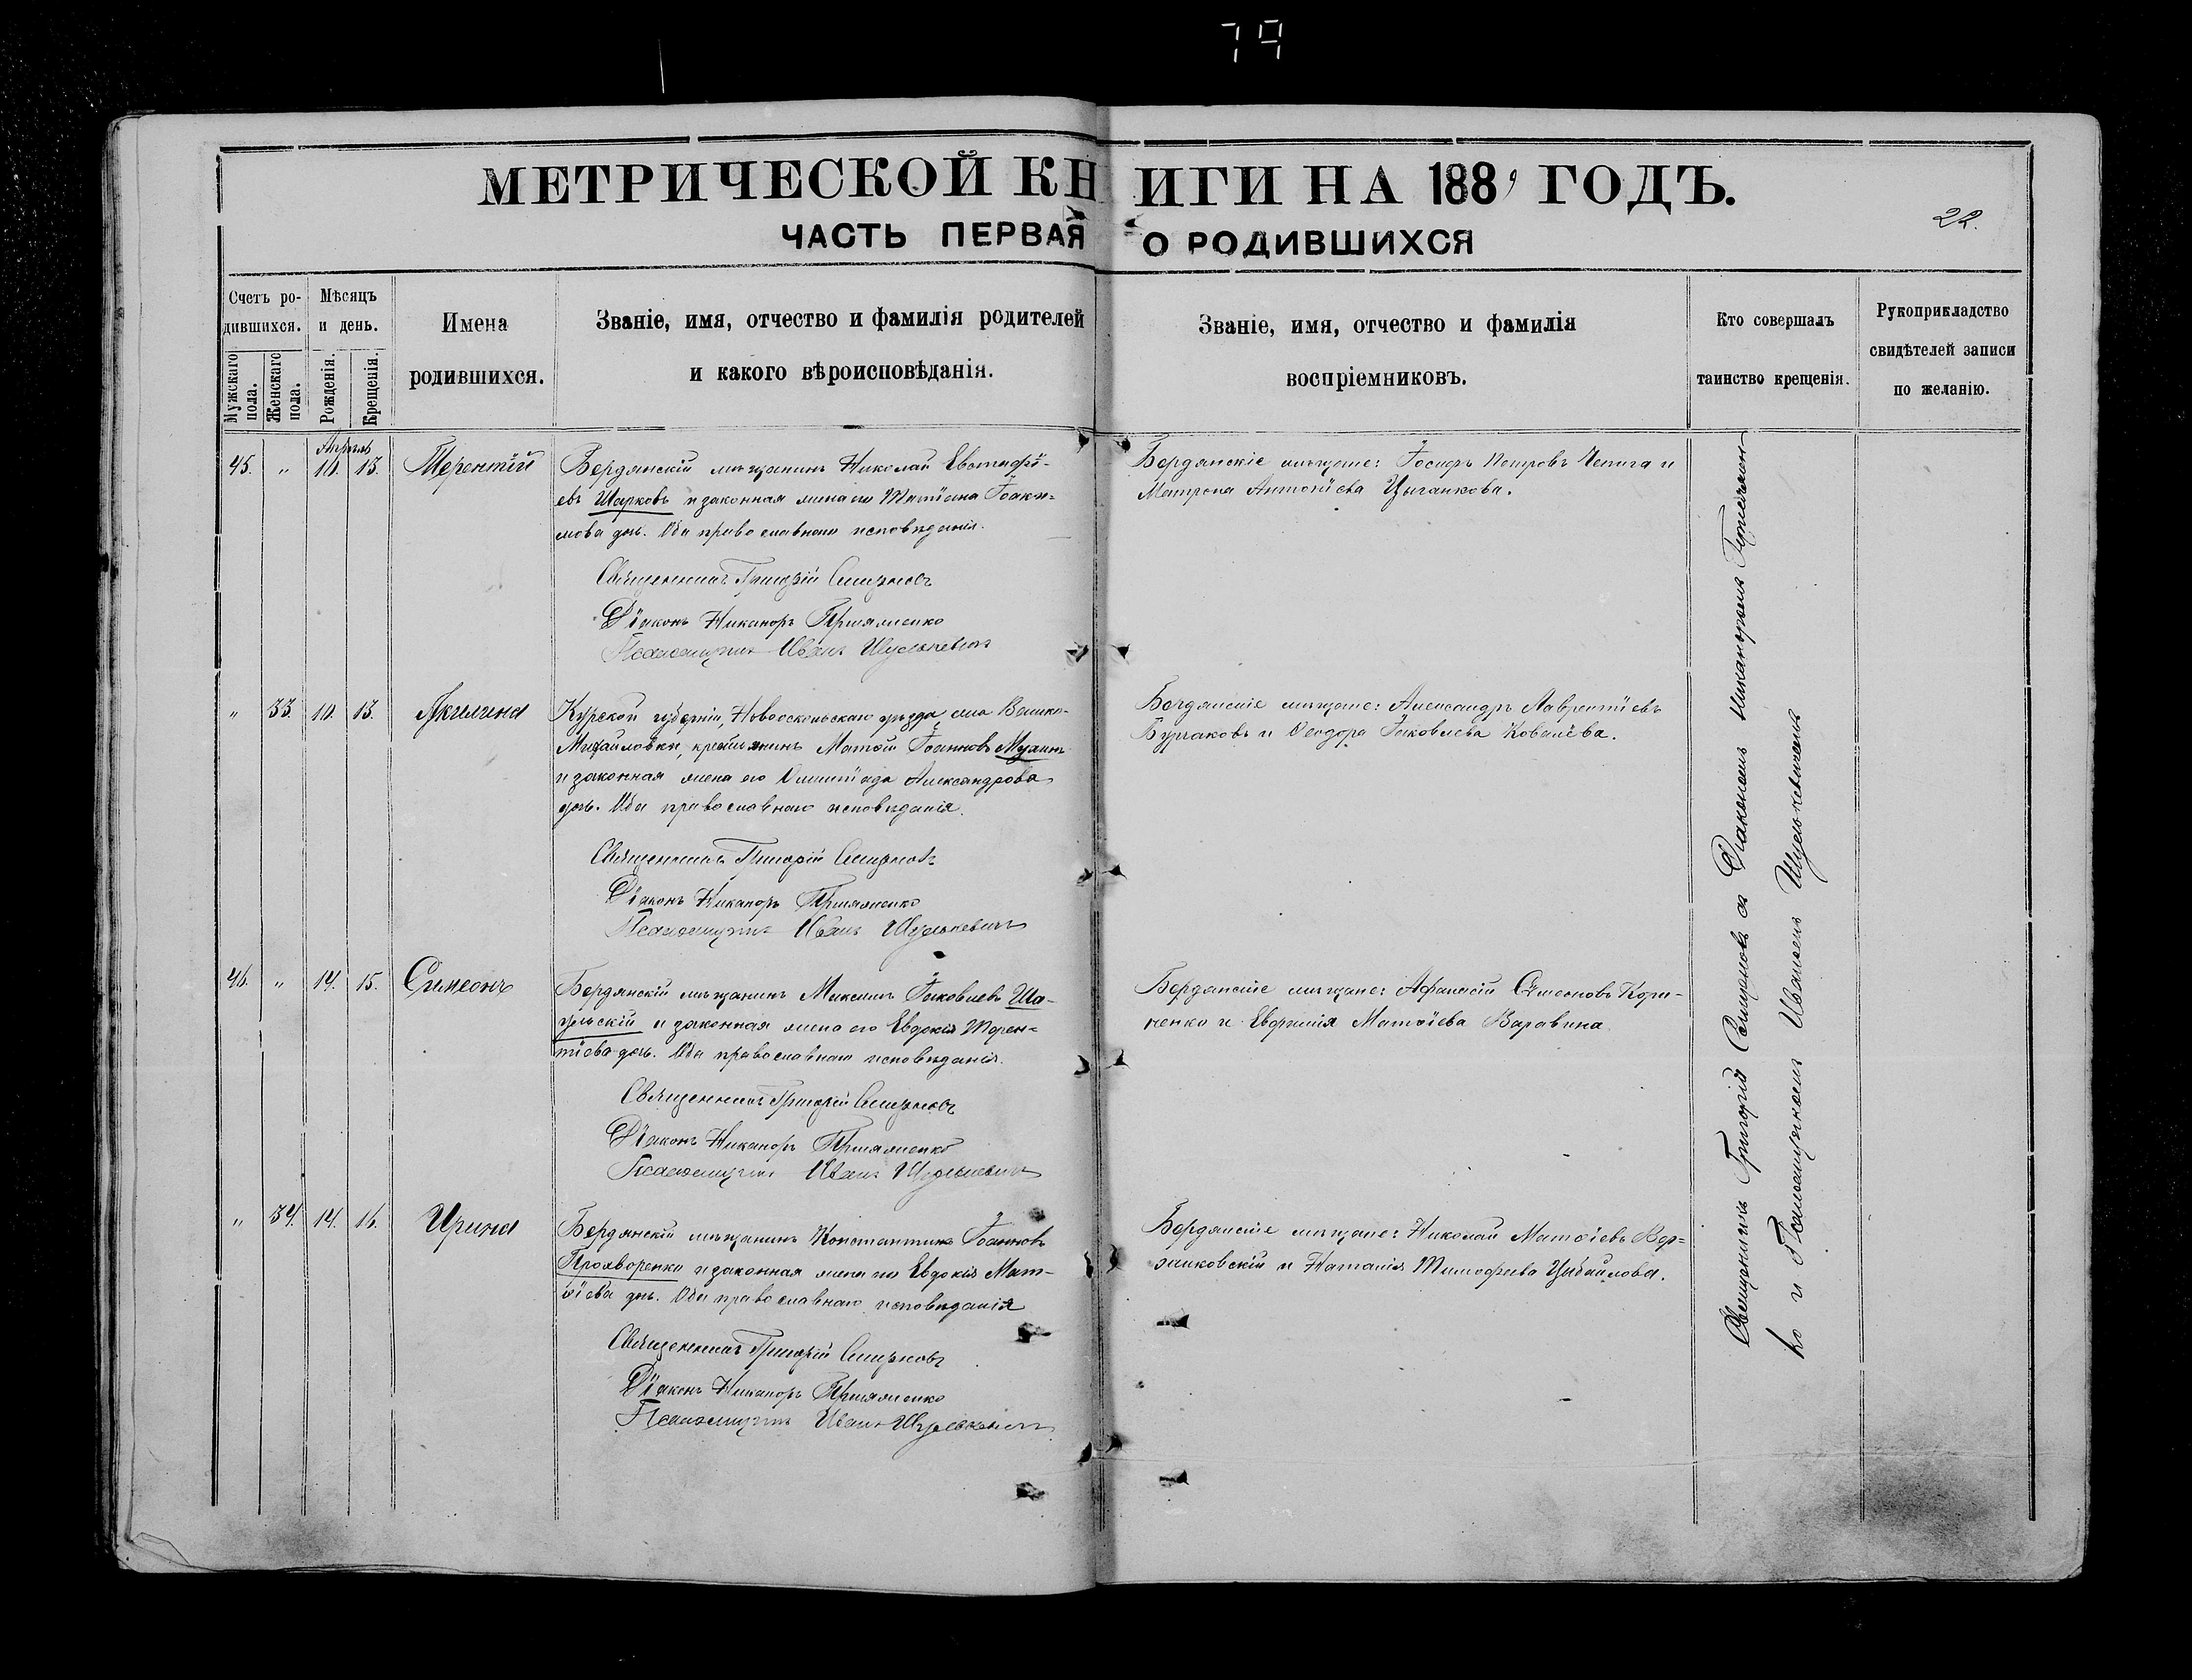 79
МЕТРИЧЕСКОЙ КНИГИ НА 1889 ГОДЪ.
ЧАСТЬ ПЕРВАЯ О РОДИВШИХСЯ
22.
Счетъ родившихся.
Мужскаго пола.
Женскаго пола.
Мѣсяцъ и день.
Рожденія.
Крещенія.
Имена
родившихся.
Званіе, имя, отчество и фамилія родителей
и какого вѣроисповѣданія.
Званіе, имя, отчество и фамилія
воспріемниковъ.
Кто совершалъ
таинство крещенія.
Рукоприкладство
свидѣтелей записи
по желанію.
Апрѣль
45. " 10. 13. Терентій
Бердянскій мѣщанинъ Николай Евстафі-
евъ Шарковъ и законная жена его Татіана Іоаки-
мова дочь. Оба православнаго исповѣданія.
Священникъ Григорій Смирновъ
Діаконъ Никаноръ
Псаломщикъ Иванъ Шулькевичъ
Бердянскіе мѣщане: Іосифъ Петровъ Чепига и
Матрона Антоніева Цыганкова.
" 33. 10. 13. Акилина
Курской губерніи, Новооскольскаго уѣзда, села Велико-
Михайловки, крестьянинъ Матѳій Іоанновъ Мухинъ
и законная жена его Олимпіада Александрова
дочь. Оба православнаго исповѣданія.
Священникъ Григорій Смирновъ
Діаконъ Никаноръ
Псаломщикъ Иванъ Шулькевичъ
Бердянскіе мѣщане: Александръ Лаврентіевъ
Бурлаковъ и Ѳеодора Іаковлева Ковалёва.
46. " 14. 15. Симеонъ
Бердянскій мѣщанинъ Максимъ Іаковлевъ Ша-
и законная жена его Евдокія Терен-
тіева дочь. Оба православнаго исповѣданія.
Священникъ Григорій Смирновъ
Діаконъ Никаноръ
Псаломщикъ Иванъ Шулькевичъ
Бердянскіе мѣщане: Афанасій Симеоновъ Кори-
ненко и Евфимія Матѳіева Варавина.
" 34. 14. 16. Ирина
Бердянскій мѣщанинъ Константинъ Іоанновъ
и законная жена его Евдокія Мат-
ѳіева дочь. Оба православнаго исповѣданія
Священникъ Григорій Смирновъ
Діаконъ Никаноръ
Псаломщикъ Иванъ Шулькевичъ
Бердянскіе мѣщане: Николай Матѳіевъ Вер-
и Наталія Тимофеева
Священникъ Григорій Смирновъ съ Діакономъ Никаноромъ
ко и Псаломщикомъ Иваномъ Шулькевичемъ